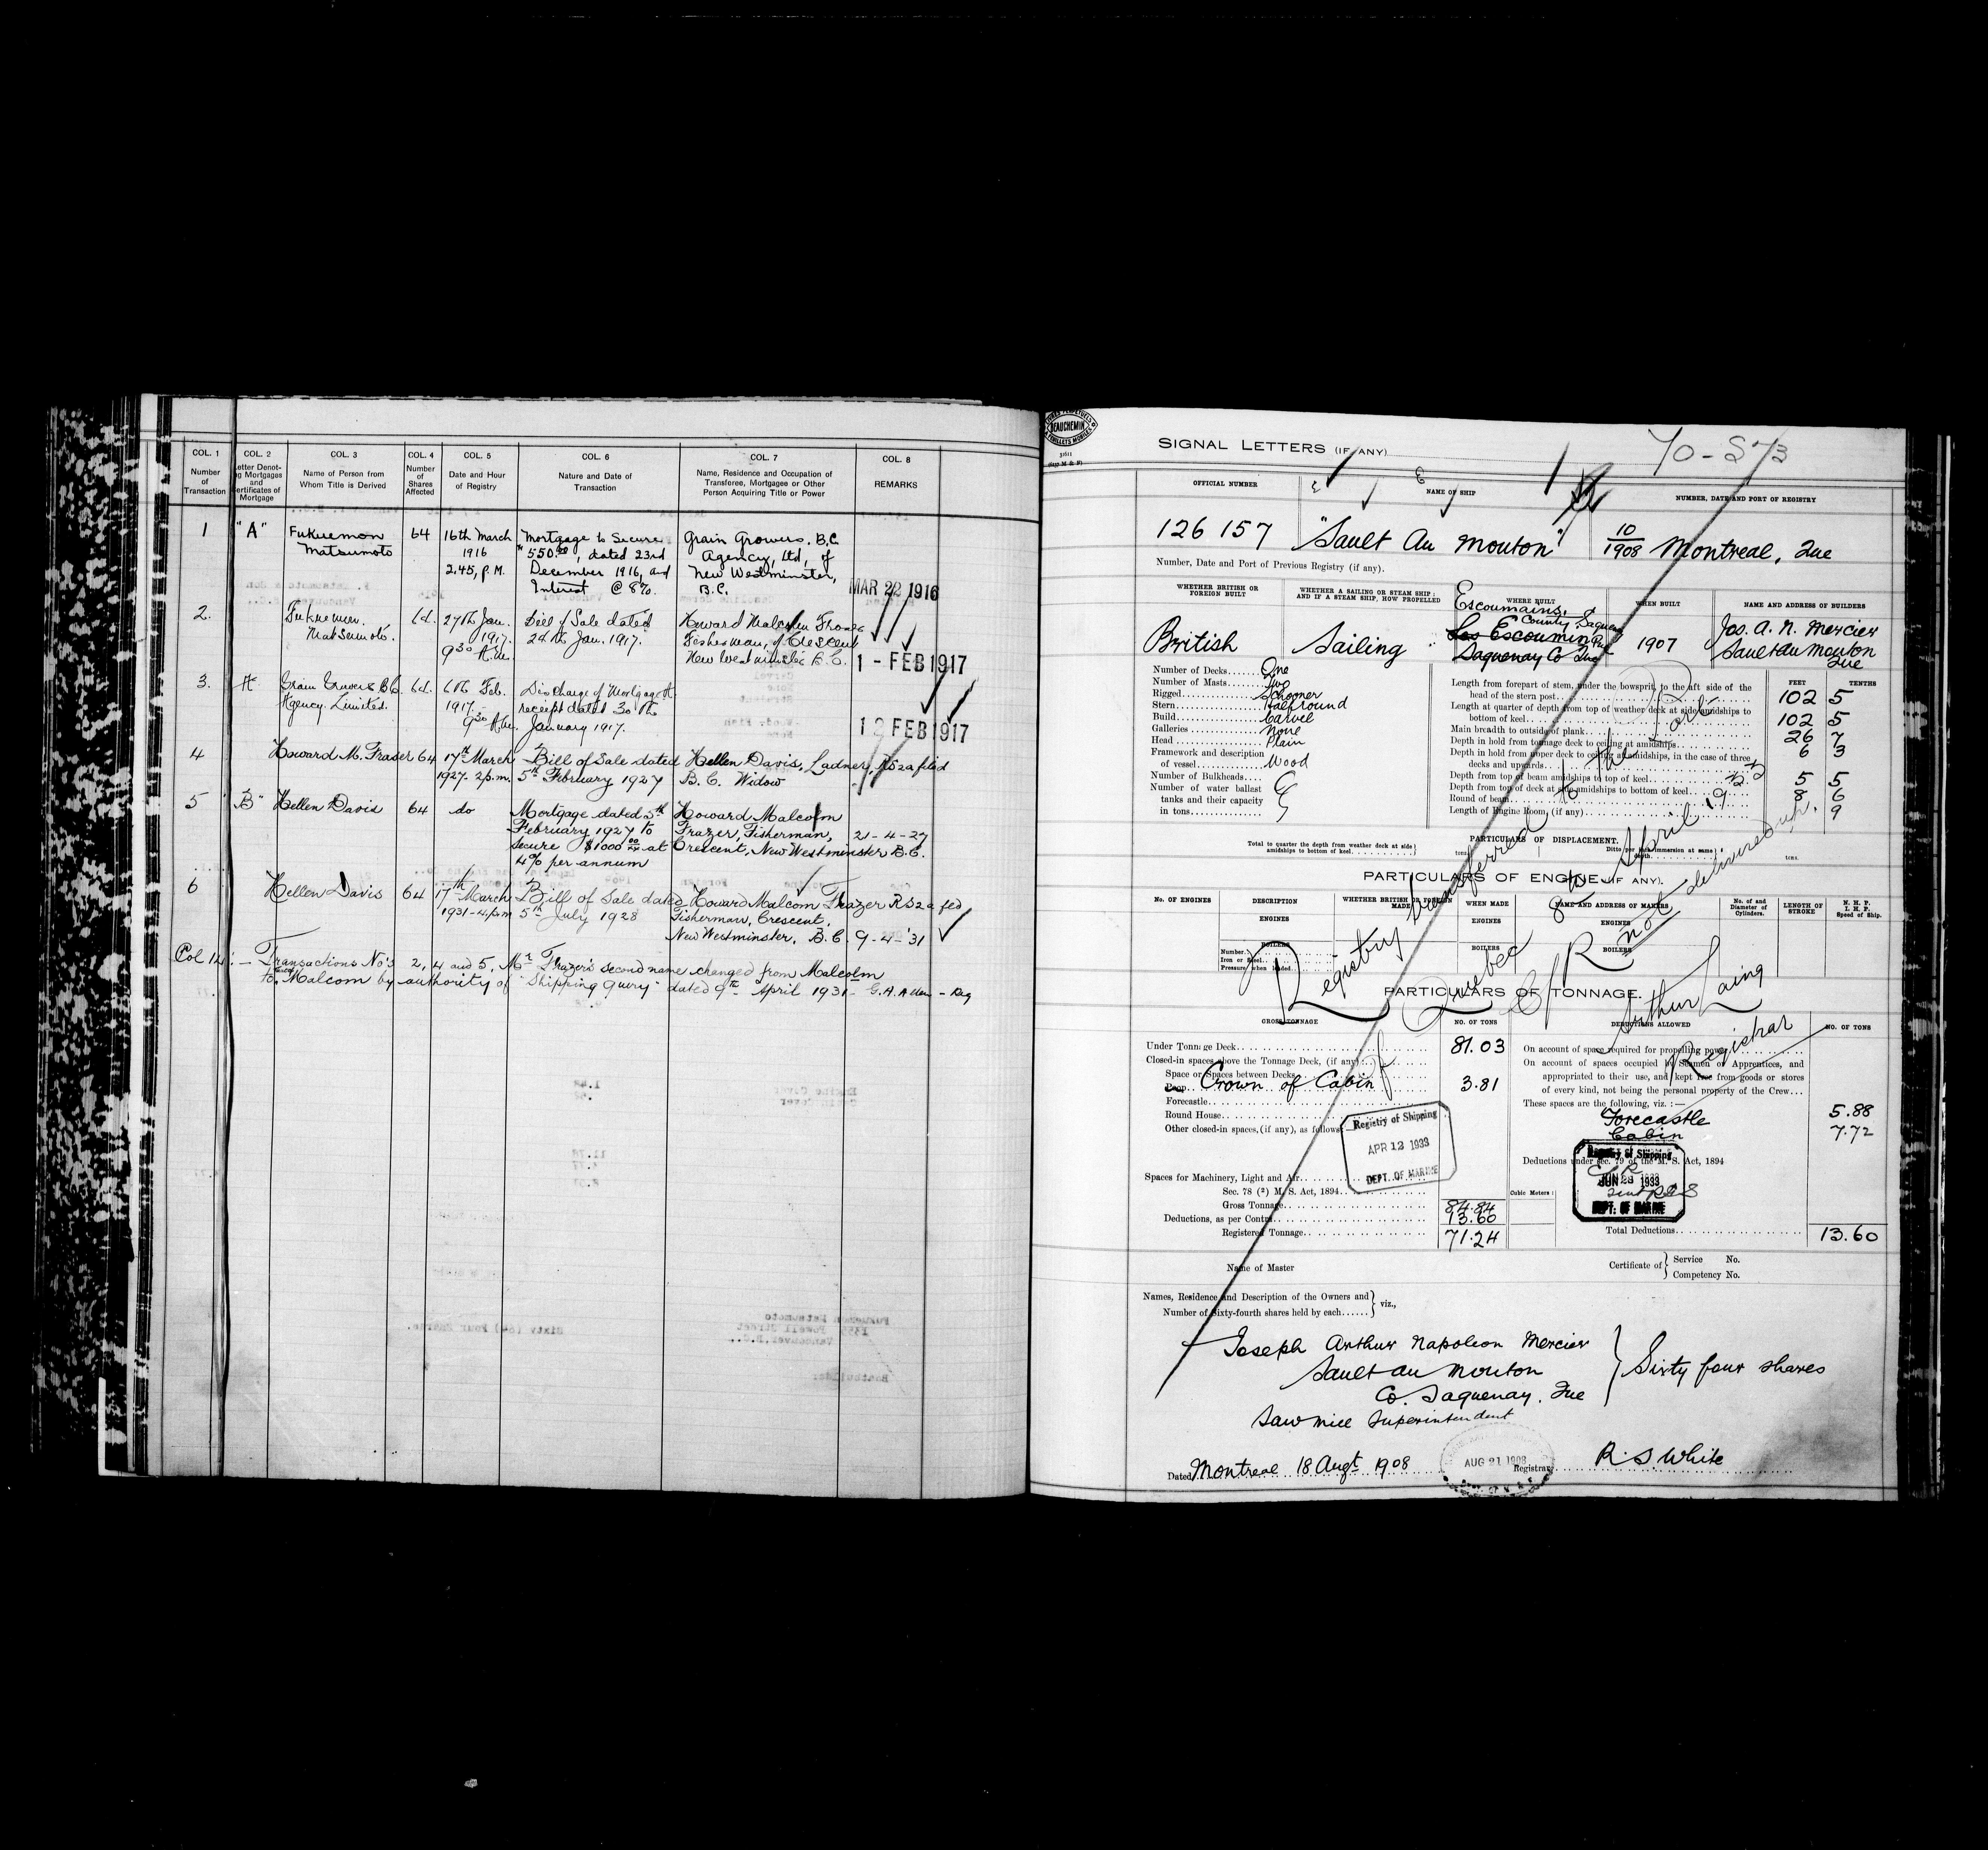 COL. 1
Number
of
Transaction
COL. 2
Letter Denot-
ing Mortgages
and
Certificates of
Mortgage
COL. 3
Name of Person from
Whom Title is Derived
COL. 4
Number
of
Shares
Affected
COL. 5
Date and Hour
of Registry
COL. 6
Nature and Date of
Transaction
COL. 7
Name, Residence and Occupation of
Transferee, Mortgagee or Other
Person Acquiring Title or Power
COL. 8
REMARKS
1
"A"
Fukuemon
Matsumoto
64
16th March
1916
2.45, p.M.
Mortgage to Secure
"550.00, dated 23rd
December 1916, and
Interest @ 8%.
Grain Growers. B.C
Agency, Ltd, of
New Westminster,
B.C.
MAR 22 1916
2.
Fukuemon
Matsumoto.
64.
27th Jan.
1917.
9.30 A.M.
Bill of Sale dated
24th Jan. 1917.
Howard Malcolm Frazer
Fisherman, of Crescent
New Westminster B.C.
1 - FEB 1917
3.
A.
Grain Growers B.C.
Agency Limited.
64.
6th Feb.
1917.
9.30 A.M.
Discharge of Mortgage A.
receipt dated 30th
January 1917.
12 FEB 1917
4
Howard M. Fraser
64
17th March
1927. 2 p.m.
Bill of Sale dated
5th February 1927
Hellen Davis, Ladner,
B. C. Widow
RS2a filed
5
"B"
Hellen Davis
64
do
Mortgage dated 5th
February 1927 to
secure $1000 00/xx at
4% per annum
Howard Malcolm
Frazer, Fisherman,
Crescent, New Westminster B.C.
21-4-27
6
Hellen Davis
64
17th March
1931-4.p.m
Bill of Sale dated
5th July 1928
Howard Malcom Frazer
Fisherman, Crescent,
New Westminster, B.C.
RS2a fed
9-4-'31
Col 14: — Transactions No's 2, 4 and 5, Mr Frazer's second name changed from Malcolm
to Malcom by authority of "Shipping Query" dated 9th April 1931 - G.A. Allen - Reg
BEAUCHEMIN
SIGNAL LETTERS (IF ANY)
70-573
OFFICIAL NUMBER
NAME OF SHIP
NUMBER, DATE AND PORT OF REGISTRY
126 157
"Sault Au Mouton"
10/1908 Montreal, Que
Number, Date and Port of Previous Registry (if any).
WHETHER BRITISH OR
FOREIGN BUILT
WHETHER A SAILING OR STEAM SHIP;
AND IF A STEAM SHIP, HOW PROPELLED
WHERE BUILT
WHEN BUILT
NAME AND ADDRESS OF BUILDERS
British
Sailing
Escoumains,
County Saguenay
Les Escoumins
Saguenay Co Que
1907
Jos. A. N. Mercier
Sault au Mouton
Que
Number of Decks.... One
Number of Masts.... Two
Rigged.... Schooner
Stern.... Half round
Build.... Carvel
Galleries.... None
Head.... Plain
Framework and description
of vessel.... Wood
Number of Bulkheads....
Number of water ballast
tanks and their capacity
in tons....
FEET
TENTHS
Length from forepart of stem, under the bowsprit, to the aft side of the
head of the stern post.... 102 5
Length at quarter of depth from top of weather deck at side amidships to
bottom of keel.... 102 5
Main breadth to outside of plank.... 26 7
Depth in hold from tonnage deck to ceiling at amidships.... 6 3
Depth in hold from upper deck to ceiling at amidships, in the case of three
decks and upwards....
Depth from top of beam amidships to top of keel.... 5 5
Depth from top of deck at side amidships to bottom of keel.... 8 6
Round of beam.... 9
Length of Engine Room, (if any)....
PARTICULARS OF DISPLACEMENT.
Total to quarter the depth from weather deck at side
amidships to bottom of keel....
tons.
PARTICULARS OF ENGINE (IF ANY).
No. OF ENGINES
DESCRIPTION
ENGINES
BOILERS
Number
Iron or Steel
Pressure when loaded
WHETHER BRITISH OR FOREIGN
MADE
WHEN MADE
ENGINES
BOILERS
NAME AND ADDRESS OF MAKERS
ENGINES
BOILERS
No. of and
Diameter of
Cylinders.
LENGTH OF
STROKE
N. H. P.
I. H. P.
Speed of Ship.
Registry transferred to the Port
of Quebec 8th April 1912
C of R not delivered up.
Arthur Laing
Registrar
PARTICULARS OF TONNAGE.
GROSS TONNAGE
NO. OF TONS
DEDUCTIONS ALLOWED
NO. OF TONS
Under Tonnage Deck.... 81.03
Closed-in spaces above the Tonnage Deck, (if any):
Space or Spaces between Decks....
Poop. Crown of Cabin 3.81
Forecastle....
Round House....
Other closed-in spaces, (if any), as follows:
Spaces for Machinery, Light and Air....
Sec. 78 (2) M. S. Act, 1894....
Gross Tonnage.... 84.84
Deductions, as per Contra.... 13.60
Registered Tonnage.... 71.24
Registry of Shipping
APR 12 1933
DEPT. OF MARINE
On account of space required for propelling power....
On account of spaces occupied by Seamen or Apprentices, and
appropriated to their use, and kept free from goods or stores
of every kind, not being the personal property of the Crew...
These spaces are the following, viz. :—
Forecastle 5.88
Cabin 7.72
Deductions under sec. 79 of the M. S. Act, 1894
Cubic Meters:
Registry of Shipping
JUN 23 1933
DEPT. OF MARINE
Total Deductions.... 13.60
Name of Master
Certificate of
Service No.
Competency No.
Names, Residence and Description of the Owners and
Number of Sixty-fourth shares held by each......
viz.,
Joseph Arthur Napoleon Mercier
Sault au Mouton
Co. Saguenay. Que
Sawmill Superintendent
Sixty four shares
Dated Montreal 18 Augt 1908
AUG 21 1908
Registrar
R. S. White